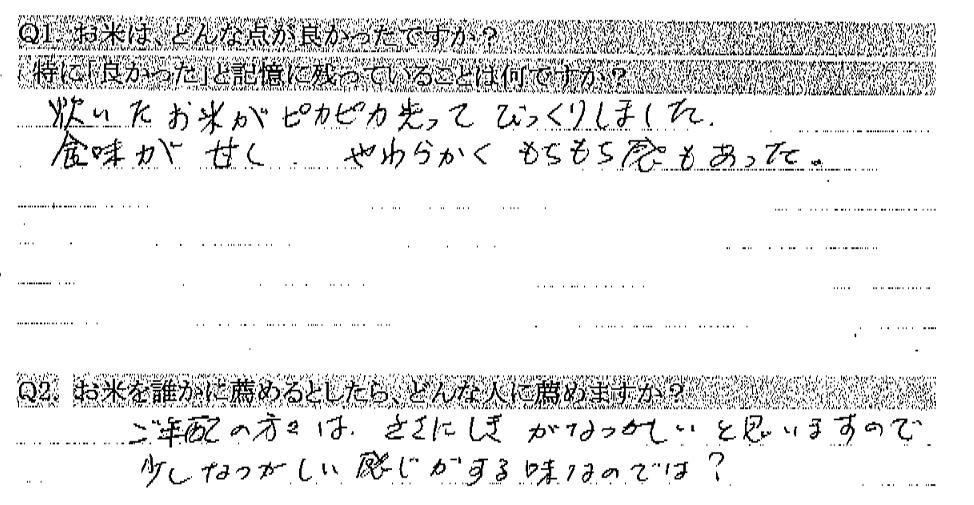 Q1. お米は、どんな点が良かったですか？
特に「良かった」と記憶に残っていることは何ですか？
炊いたお米がピカピカ光ってびっくりしました.
食味が甘く. やわらかくもちもち感もあった。
Q2. お米を誰かに薦めるとしたら、どんな人に薦めますか？
ご年配の方々は. ささにしきがなつかしいと思いますので
少しなつかしい感じがする味なのでは？